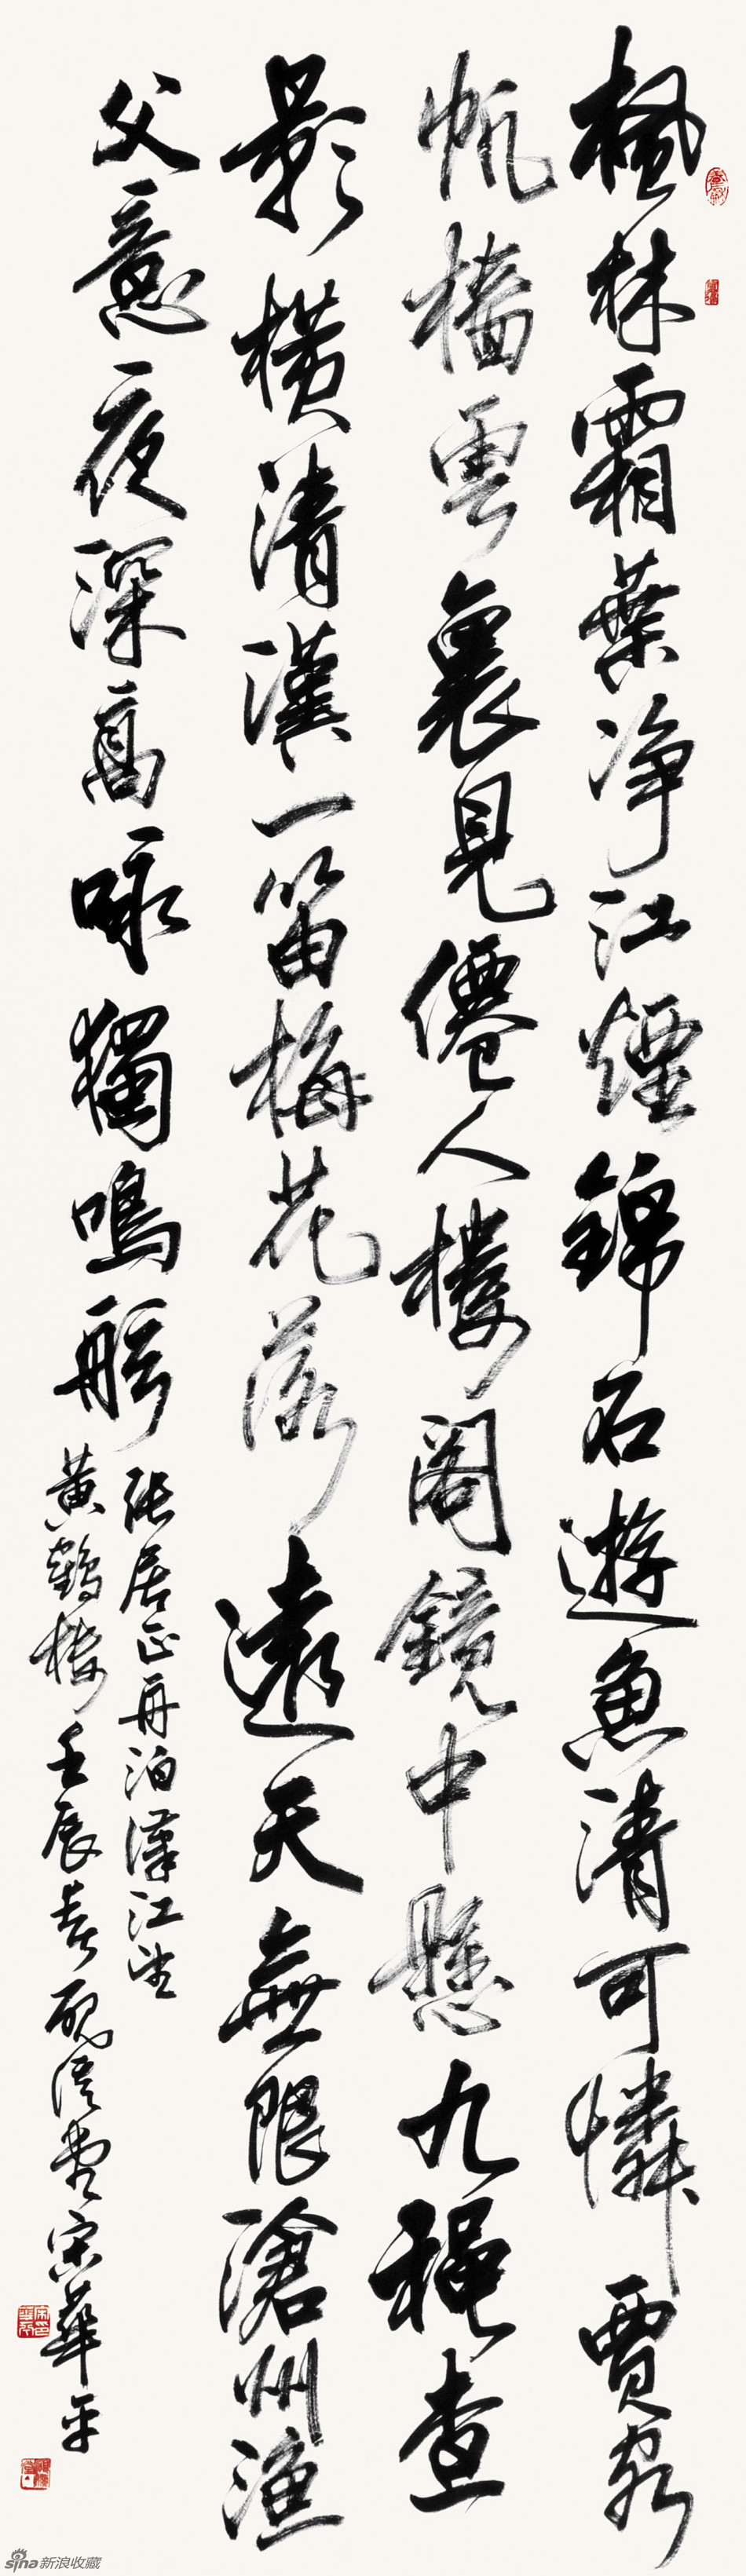 楓林霜葉淨江煙錦石遊魚清可憐賈客
帆檣雲裏見僊人樓閣鏡中懸九穐查
影橫清漢一笛梅花落遠天無限滄州漁
父意夜深高咏獨鳴舷
張居正再泊漢江望
黃鶴樓壬辰春硯濱堂宋華平
sina新浪收藏